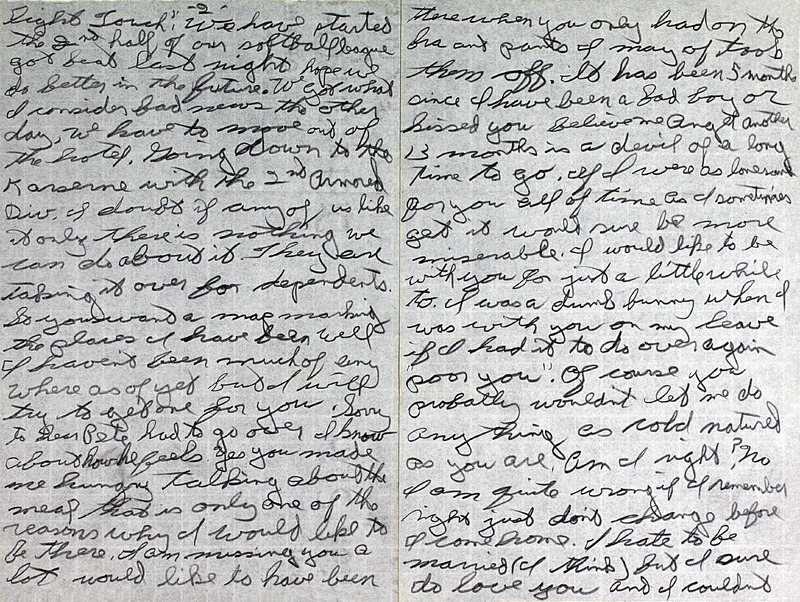 -2-
Light Touch". We have started
the 2nd half of our softball league
got beat last night hope we
do better in the future. We got what
I consider bad news the other
day, we have to move out of
the hotel. Going down to the
Karserne with the 2nd Armored
Div. I doubt if any of us like
it only there is nothing we
can do about it. They are
taking it over for dependents.
So you want a map marking
the places I have been well
I haven't been much of any
where as of yet but I will
try to get one for you. Sorry
to hear Pete had to go over I know
about how he feels. Yes you made
me hungry talking about the
meal that is only one of the
reasons why I would like to
be there. I am missing you a
lot would like to have been
there when you only had on the
bra and pants I may of took
them off. It has been 5 months
since I have been a bad boy or
kissed you believe me Angel another
13 months is a devil of a long
time to go. If I were as lonesome
for you all of time as I sometimes
get it would sure be more
miserable. I would like to be
with you for just a little while
to. I was a dumb bunny when I
was with you on my leave
if I had it to do over again
"poor you". Of course you
probably wouldn't let me do
anything as cold natured
as you are. Am I right? No
I am quite wrong if I remember
right just don't change before
I come home. I hate to be
married (I think) but I sure
do love you and I couldnt